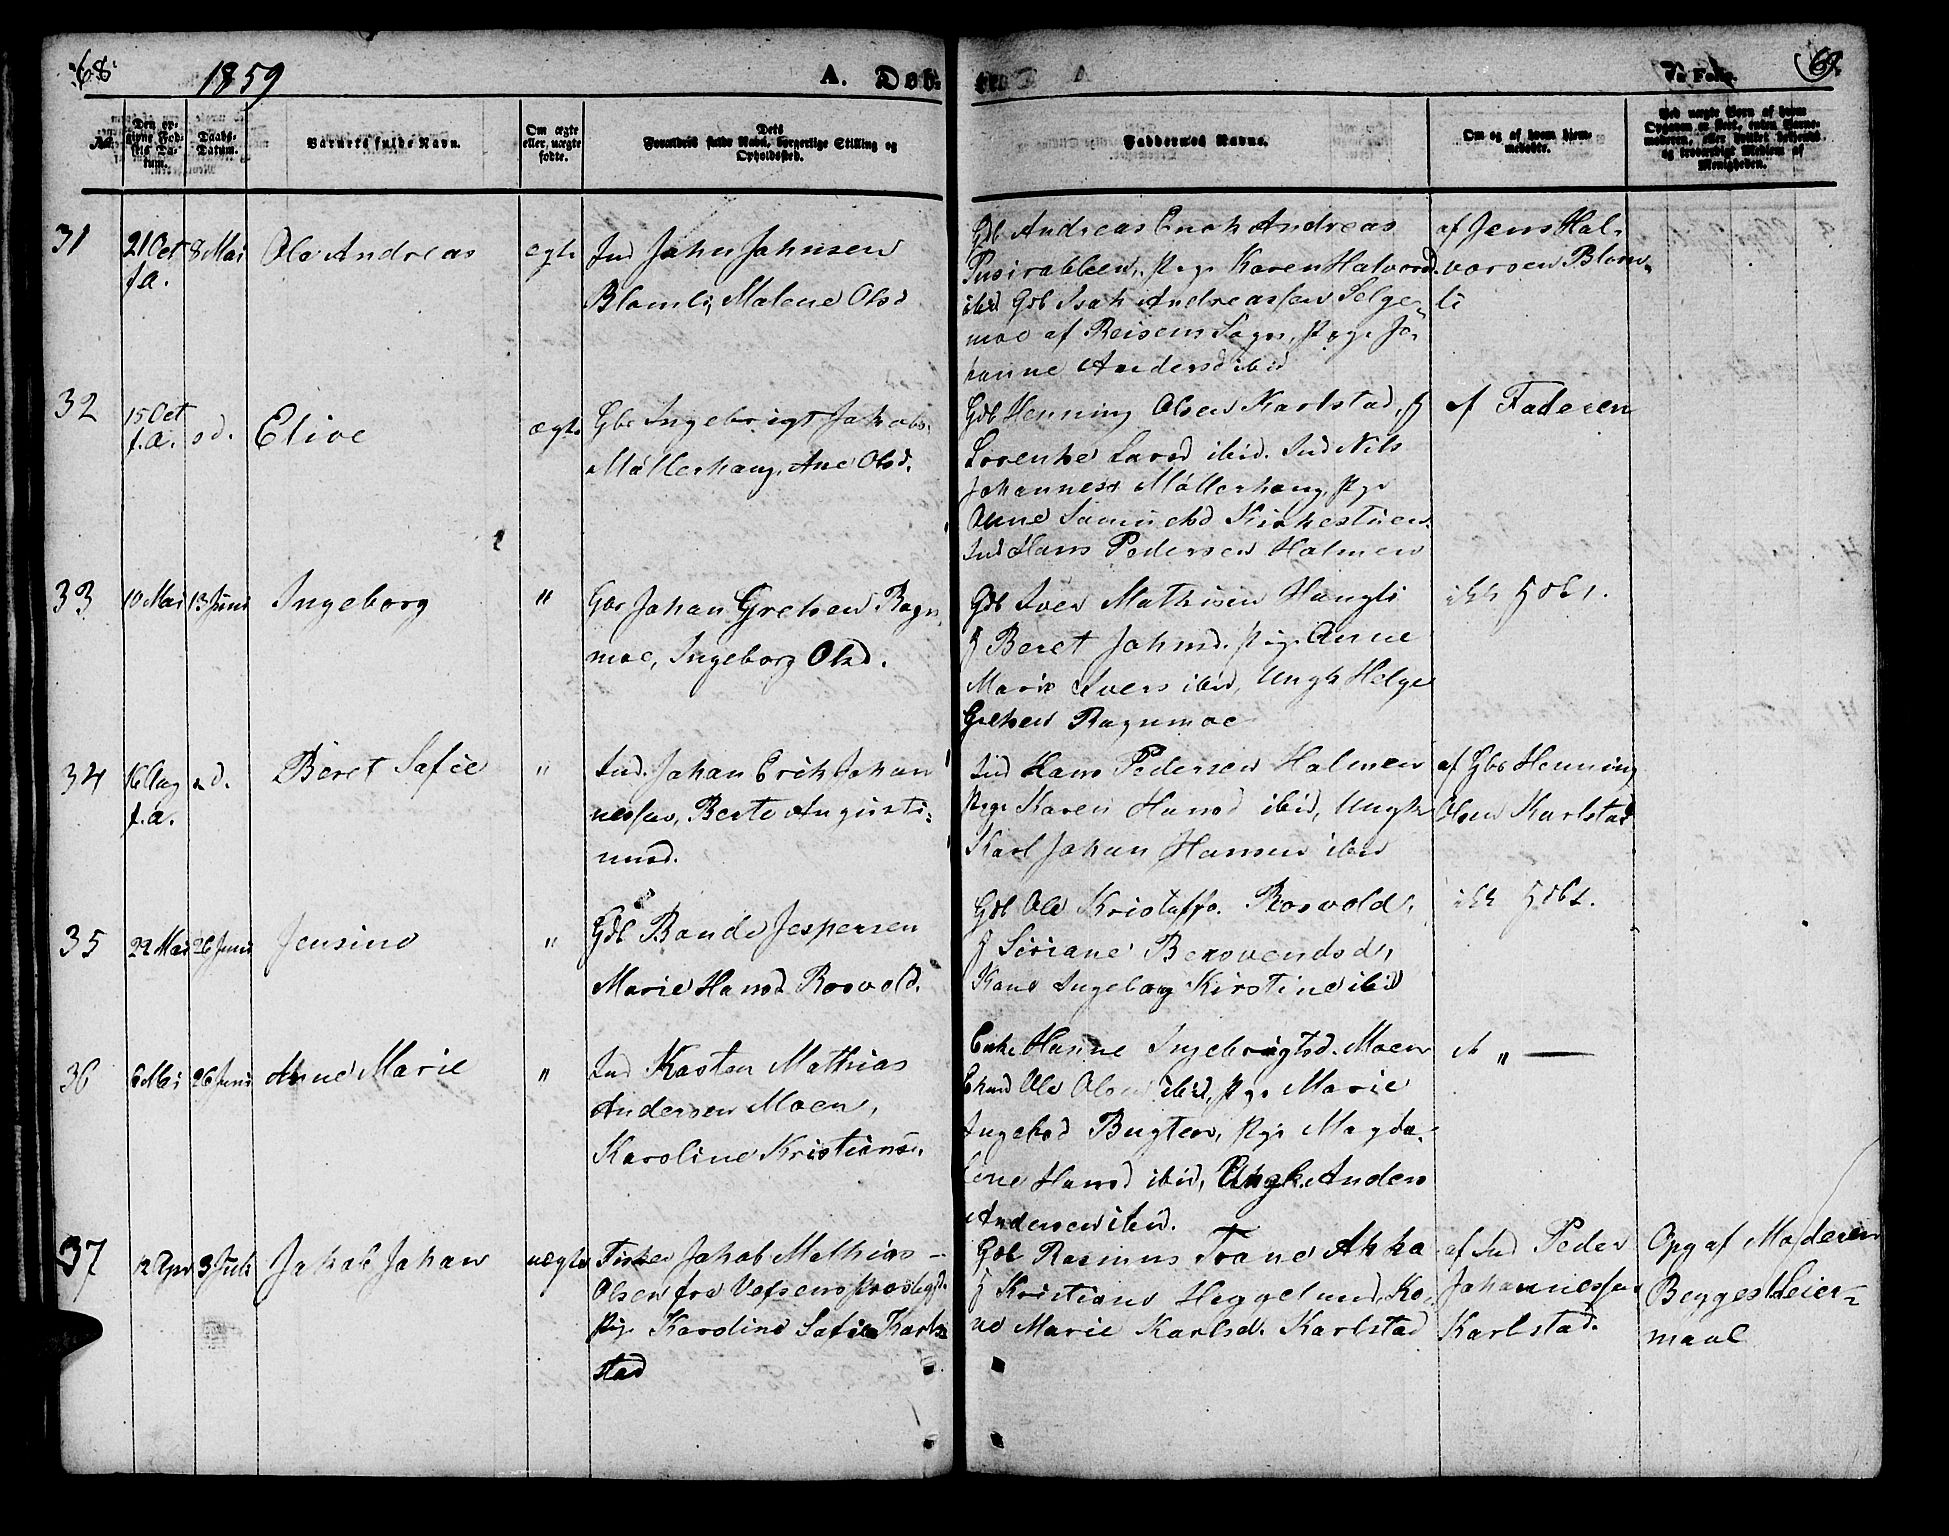 68.
1859
A. Døb-
te Folk.
69.
No.
Den opgivne Fødsels Datum.
Daabs-Datum.
Barnets fulde Navn.
Om ægte eller uægte fødte.
Dets Forældres fulde Navn, borgerlige Stilling og Opholdssted.
Faddernes Navne.
Om og af hvem hjemmedøbte.
31
21 Oct
f.a.
8 Mai
Ole Andreas
ægte
Ind John Johnsen
Blomli, Malene Olsd
Gdb Andreas Enok Andreas
Pige Karen Halvorsd.
ibid Gdb Isak Andreassen Selge-
moe af Reisens Sogn, Pige Jo-
hanne Andersd ibid
af Jens Hal-
vorsen Blom-
li
32
15 Oct
f.a.
s.d.
Elive
ægte
Gbr Ingebrigt Jakobs.
Møllerhaug, Ane Olsd.
Gdb Henning Olsen Karlstad, H
Lorentse Larsd ibid. Ind Nils
Johanness Møllerhaug, Pige
Anne Samuelsd Kirkestuen.
Ind Hans Pedersen Holmen
af Faderen
33
10 Mai
13 Juni
Ingeborg
"
Gbr Johan Grehen Ragn
moe, Ingeborg Olsd.
Gdb Iver Mathisen Haugli
H Beret Johnsd. Pige Anne
Marie Ivers ibid, Ungk Helge
Grehen Ragnmoe
ikk hdbt.
34
16 Aug
f.a.
s.d.
Beret Sofie
"
Ind. Johan Erik Johan
nessen, Berte Augusti-
nusd.
Ind Hans Pedersen Holmen
Pige Karen Hansd ibid, Ungk
Karl Johan Hansen ibid
af Gbr Henning
Olsen Karlstad
35
22 Mai
26 Juni
Jensine
"
Gdb Bonde Jespersen
Marie Hansd Rosvold.
Gdb Ole Kristoffs. Rosvold,
H Siriane Bersvendsd,
Kone Ingeborg Kirstine ibid
ikk hdbt.
36
6 Mai
26 Juni
Anne Marie
"
Ind Karsten Mathias
Andersen Moen,
Karoline Kristians.
Enke Hanne Ingebrigtsd. Moen
Ole Olsen ibid, Pige Marie
Bugten, Pige Magda-
lene Hansd ibid, Ungk. Anders
Andersen ibid.
" —
37
12 Apr
3 Juli
Jakob Johan
uægte
Fisker Jakob Mathias
Olsen fra Vefsens Præstegjd.
Pige Karoline Sofie Karl-
stad
Gdb Rasmus Trane
H Kristiane Heggelund, Ko-
ne Marie Karlsd. Karlstad
af Ind Peder
Johannessen
Karlstad.
Opg af Moderen
Begges 1 Leier-
maal